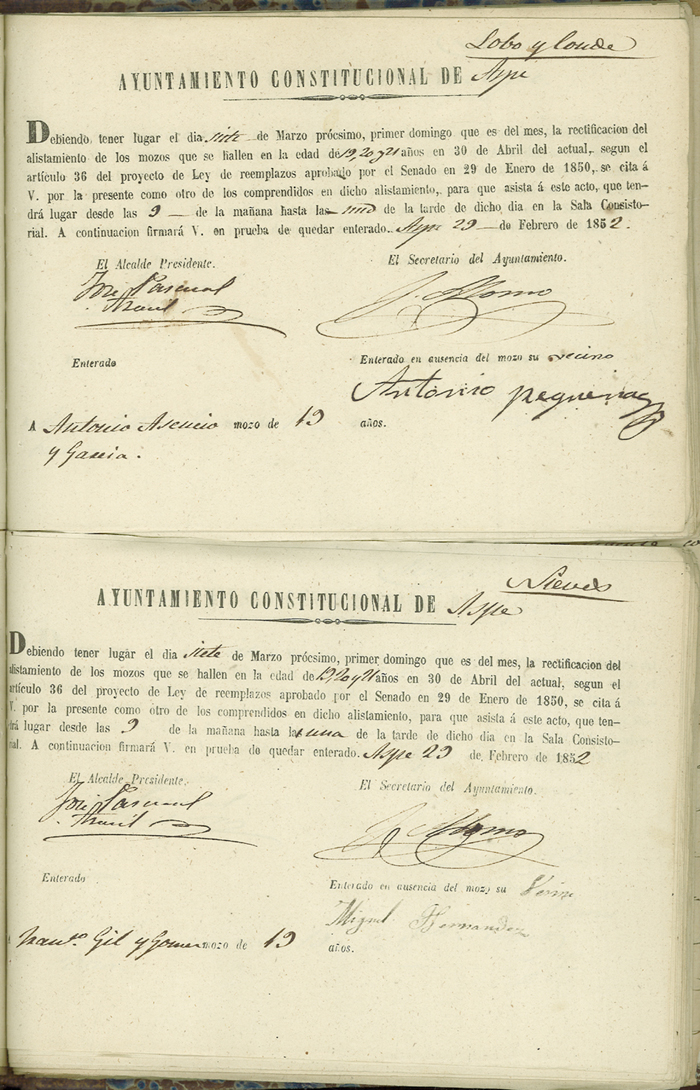 Lobo y Conde
AYUNTAMIENTO CONSTITUCIONAL DE Aspe
Debiendo tener lugar el dia siete de Marzo prócsimo, primer domingo que es del mes, la rectificacion del
alistamiento de los mozos que se hallen en la edad de 19, 20 y 21 años en 30 de Abril del actual, segun el
artículo 36 del proyecto de Ley de reemplazos aprobado por el Senado en 29 de Enero de 1850, se cita á
V. por la presente como otro de los comprendidos en dicho alistamiento, para que asista á este acto, que ten-
drá lugar desde las 9 de la mañana hasta las una de la tarde de dicho dia en la Sala Consisto-
rial. A continuacion firmará V. en prueba de quedar enterado. Aspe 29 de Febrero de 1852.
El Alcalde Presidente. El Secretario del Ayuntamiento.
José Pascual
Enterado Enterado en ausencia del mozo su vecino
Antonio
A Antonio Asencio mozo de 19 años.
y Garcia.
Nieves
AYUNTAMIENTO CONSTITUCIONAL DE Aspe
Debiendo tener lugar el dia siete de Marzo prócsimo, primer domingo que es del mes, la rectificacion del
alistamiento de los mozos que se hallen en la edad de 19, 20 y 21 años en 30 de Abril del actual, segun el
artículo 36 del proyecto de Ley de reemplazos aprobado por el Senado en 29 de Enero de 1850, se cita á
V. por la presente como otro de los comprendidos en dicho alistamiento, para que asista á este acto, que ten-
drá lugar desde las 9 de la mañana hasta la una de la tarde de dicho dia en la Sala Consisto-
rial. A continuacion firmará V. en prueba de quedar enterado. Aspe 29 de Febrero de 1852
El Alcalde Presidente. El Secretario del Ayuntamiento.
José Pascual
Enterado Enterado en ausencia del mozo su
Miguel Hernandez
Gil y Gomez mozo de 19 años.